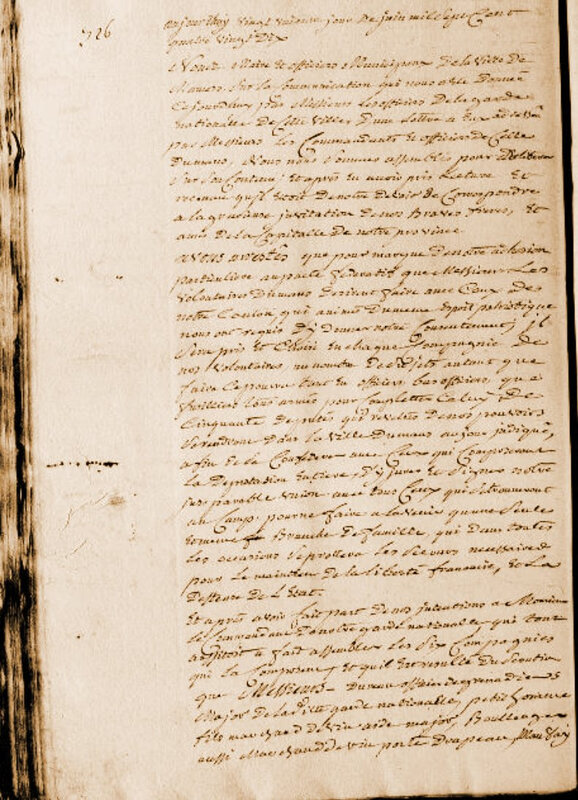 726
aujourd'huy vingt jour De juin mil Sept Cent
quatre vingt Dix
Nous Maire et officiers Municipaux De la Ville De
Mamers, Sur la Communication qui nous a été Donnée
Ce jourd'huy par Messieurs les officiers De la garde
nationalle De Cette Ville, D'une Lettre a Eux adressée
par Messieurs les Commandants et officiers De Celle
Dumans, Nous nous Sommes assemblés pour Deliberer
Sur Son Contenu, Et après En avoir pris Lecture Et
reconnu qu'il Etoit De notre Devoir De Correspondre
a la gracieuse invitation De nos Braves freres, Et
amis De la Capitalle De notre province
avons arrestés que pour marque De notre adhesion
particuliere au pacte federatif que Messieurs Les
Volontaires Dumans Desirent faire avec Ceux De
notre Canton, qui animés Du meme Esprit patriotique
nous ont requis D'y Donner notre Consentement, il
Sera pris Et Choisi En Chaque Compagnie De
nos Volontaires, un nombre De Sujets autant que
faire Ce poura tant En officiers bas officiers, que
fusilliers tous armés pour Completter Celuy De
Cinquante Deputés, qui revêtus De nos pouvoirs
Se rendront Dans la Ville Dumans au jour jndiqué,
afin de Se Confederer avec Ceux qui Composeront
la Deputation Entiere, D'y jurer Et Signer notre
jnseparable union avec tous Ceux qui S'y trouveront
au Camp, pour ne faire a la Venir qu'une Seule
Et meme Branche De famille, qui Dans toutes
les occasions Se prêtera les Secours necessaires
pour le maintien De la liberté françoise, Et La
Deffense De L'Etat.
Et après avoir fait part De nos jntentions a Monsieur
le Commandant De notre garde nationalle, qui tout
aussitot a fait assembler les Six Compagnies
qui la Composent, Et qu'il Est resulté Du Scrutin
que Messieurs Dumans officier De grenadiers
Major De la D.te garde nationalle, petit
fils marchand De Vin aide major, Boullenger
aussi Marchand De Vin porte Drapeau,